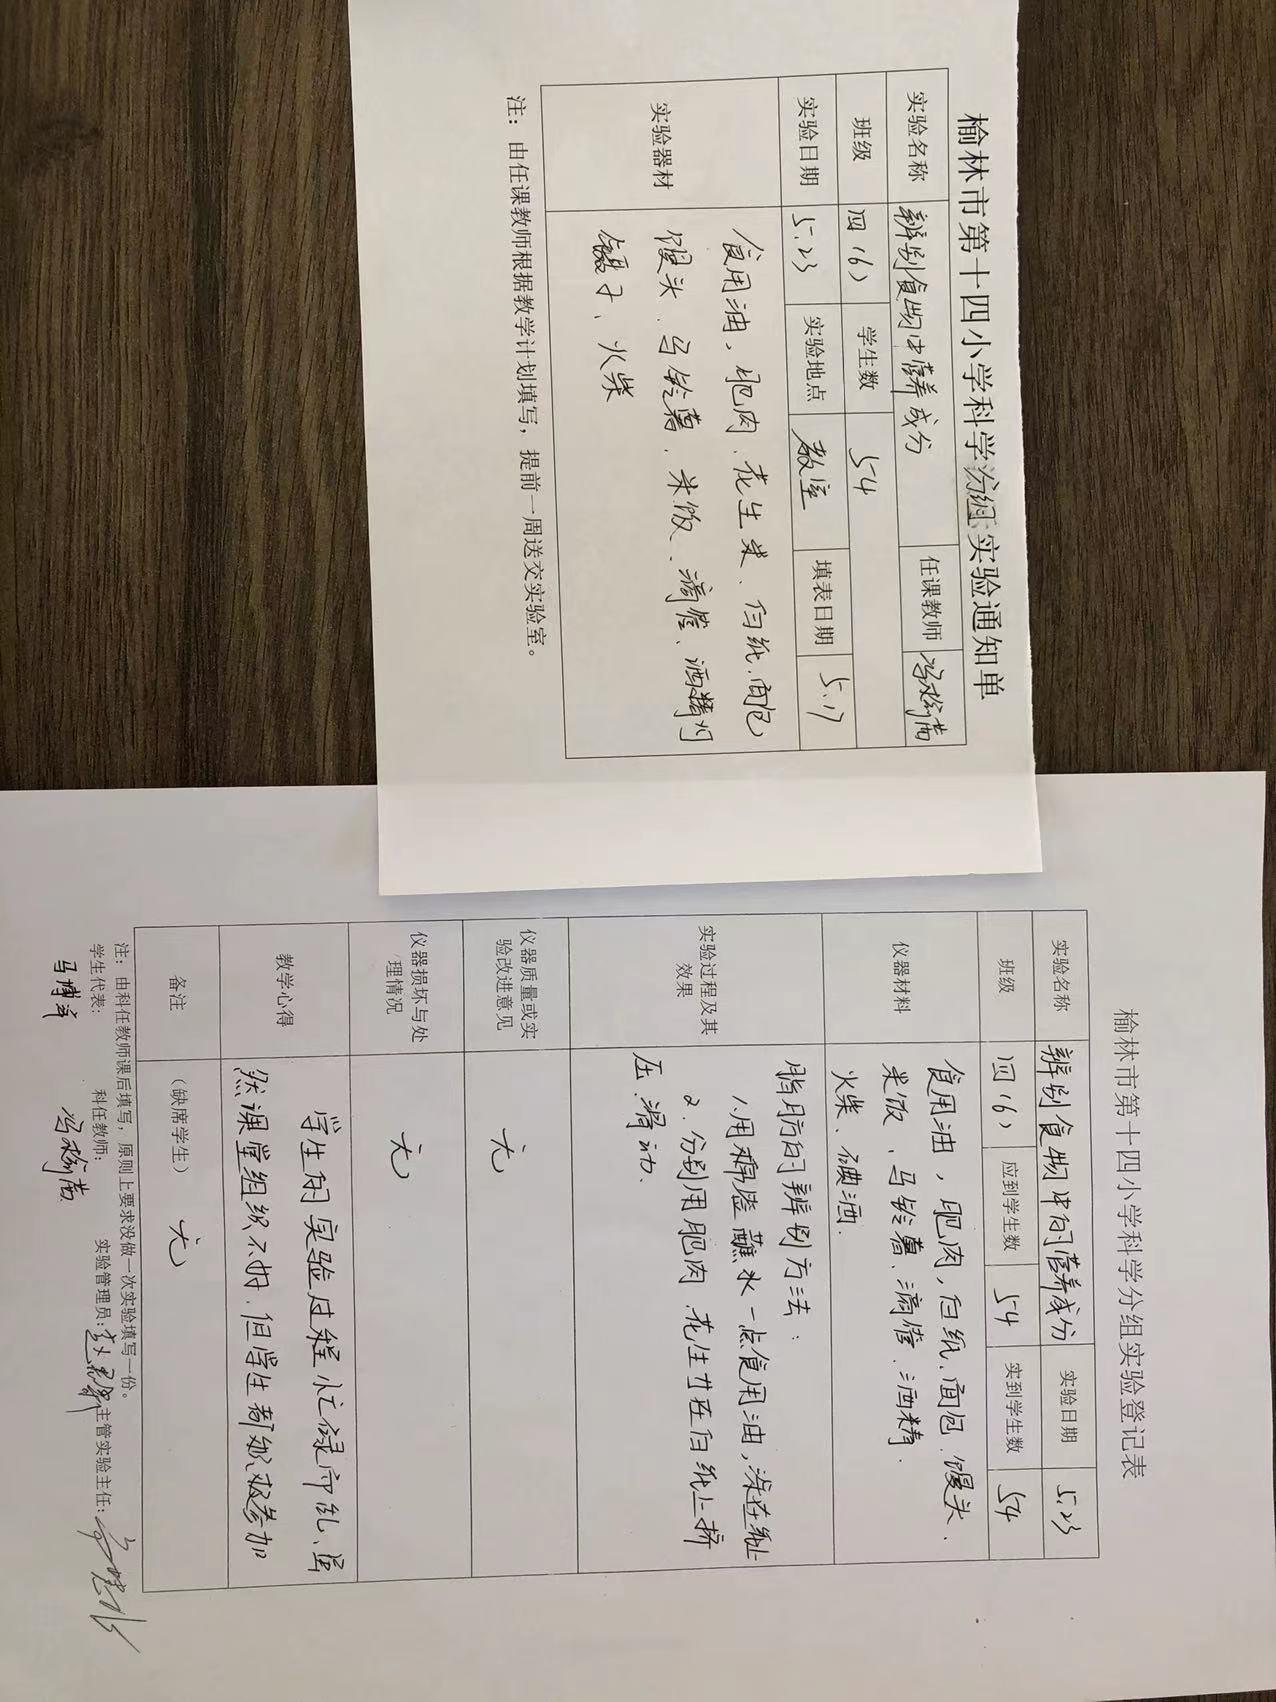 榆林市第十四小学科学分组实验通知单
实验名称 辨别食物中营养成分 任课教师
班级 四(6) 学生数 54
实验日期 5.23 实验地点 教室 填表日期 5.17
实验器材
食用油，肥肉、花生米、白纸、面包
馒头、马铃薯、米饭、滴管、酒精灯
镊子、火柴
注：由任课教师根据教学计划填写，提前一周送交实验室。
榆林市第十四小学科学分组实验登记表
实验名称 辨别食物中的营养成分 实验日期 5.23
班级 四(6) 应到学生数 54 实到学生数 54
仪器材料
食用油，肥肉，白纸、面包、馒头、
米饭、马铃薯、滴管、酒精、
火柴、碘酒.
实验过程及其
效果
脂肪的辨别方法：
1.用棉签蘸水一点食用油，涂在纸上
2.分别用肥肉、花生在白纸上挤
压、滑动、
仪器质量或实
验改进意见
无
仪器损坏与处
理情况
无
教学心得
学生的实验过程忙碌而乱、虽
然课堂组织不好，但学生都积极参加
备注 （缺席学生） 无
注：由科任教师课后填写，原则上要求没做一次实验填写一份。
学生代表： 科任教师： 实验管理员： 主管实验主任：